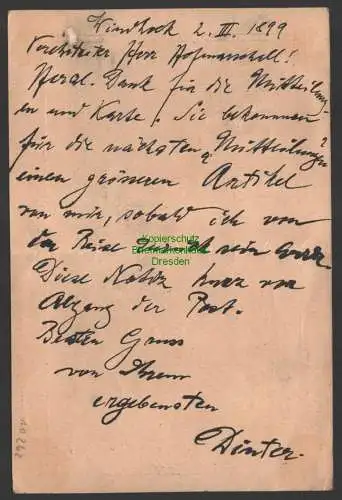 Windhoek 2. III. 1899
Verehrter Herr Hofmarschall!
Herzl. Dank für die Mittheilung-
en und Karte. Sie bekommen
für die nächsten "Mittheilungen"
einen grösseren Artikel
von mir, sobald ich von
der Reise zurück sein werde.
Diese Notiz kurz vor
Abgang der Post.
Besten Gruss
von Ihrem
ergebensten
Dinter.
Kopierschutz
Briefmarkenhaus
Dresden